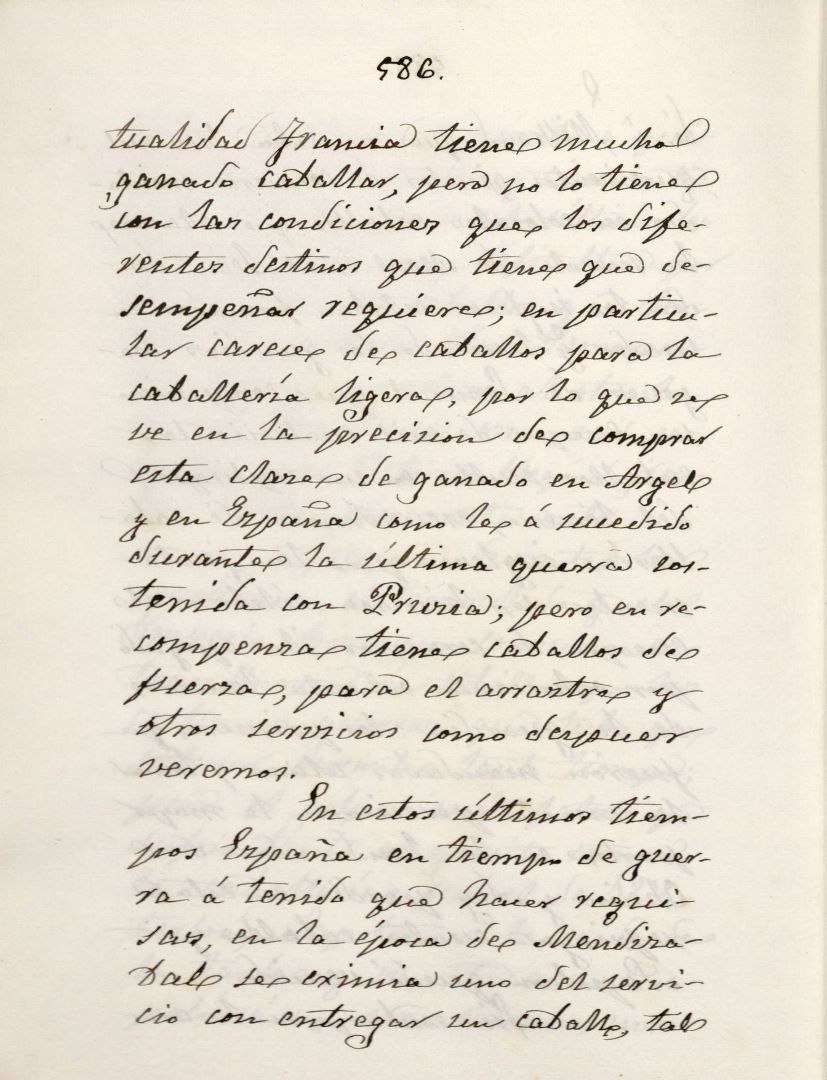 586.
tualidad Francia tiene mucho
ganado caballar, pero no lo tiene
con las condiciones que los dife-
rentes destinos que tiene que de-
sempeñar requiere; en particu-
lar carece de caballos para la
caballería ligera, por lo que se
ve en la precision de comprar
esta clase de ganado en Argel
y en España como le á sucedido
durante la última guerra sos-
tenida con Prusia; pero en re-
compensa tiene caballos de
fuerza, para el arrastre y
otros servicios como despues
veremos.
En estos últimos tiem-
pos España en tiempo de guer-
ra á tenido que hacer requi-
sas, en la época de Mendiza-
bal se eximia uno del servi-
cio con entregar un caballo, tal